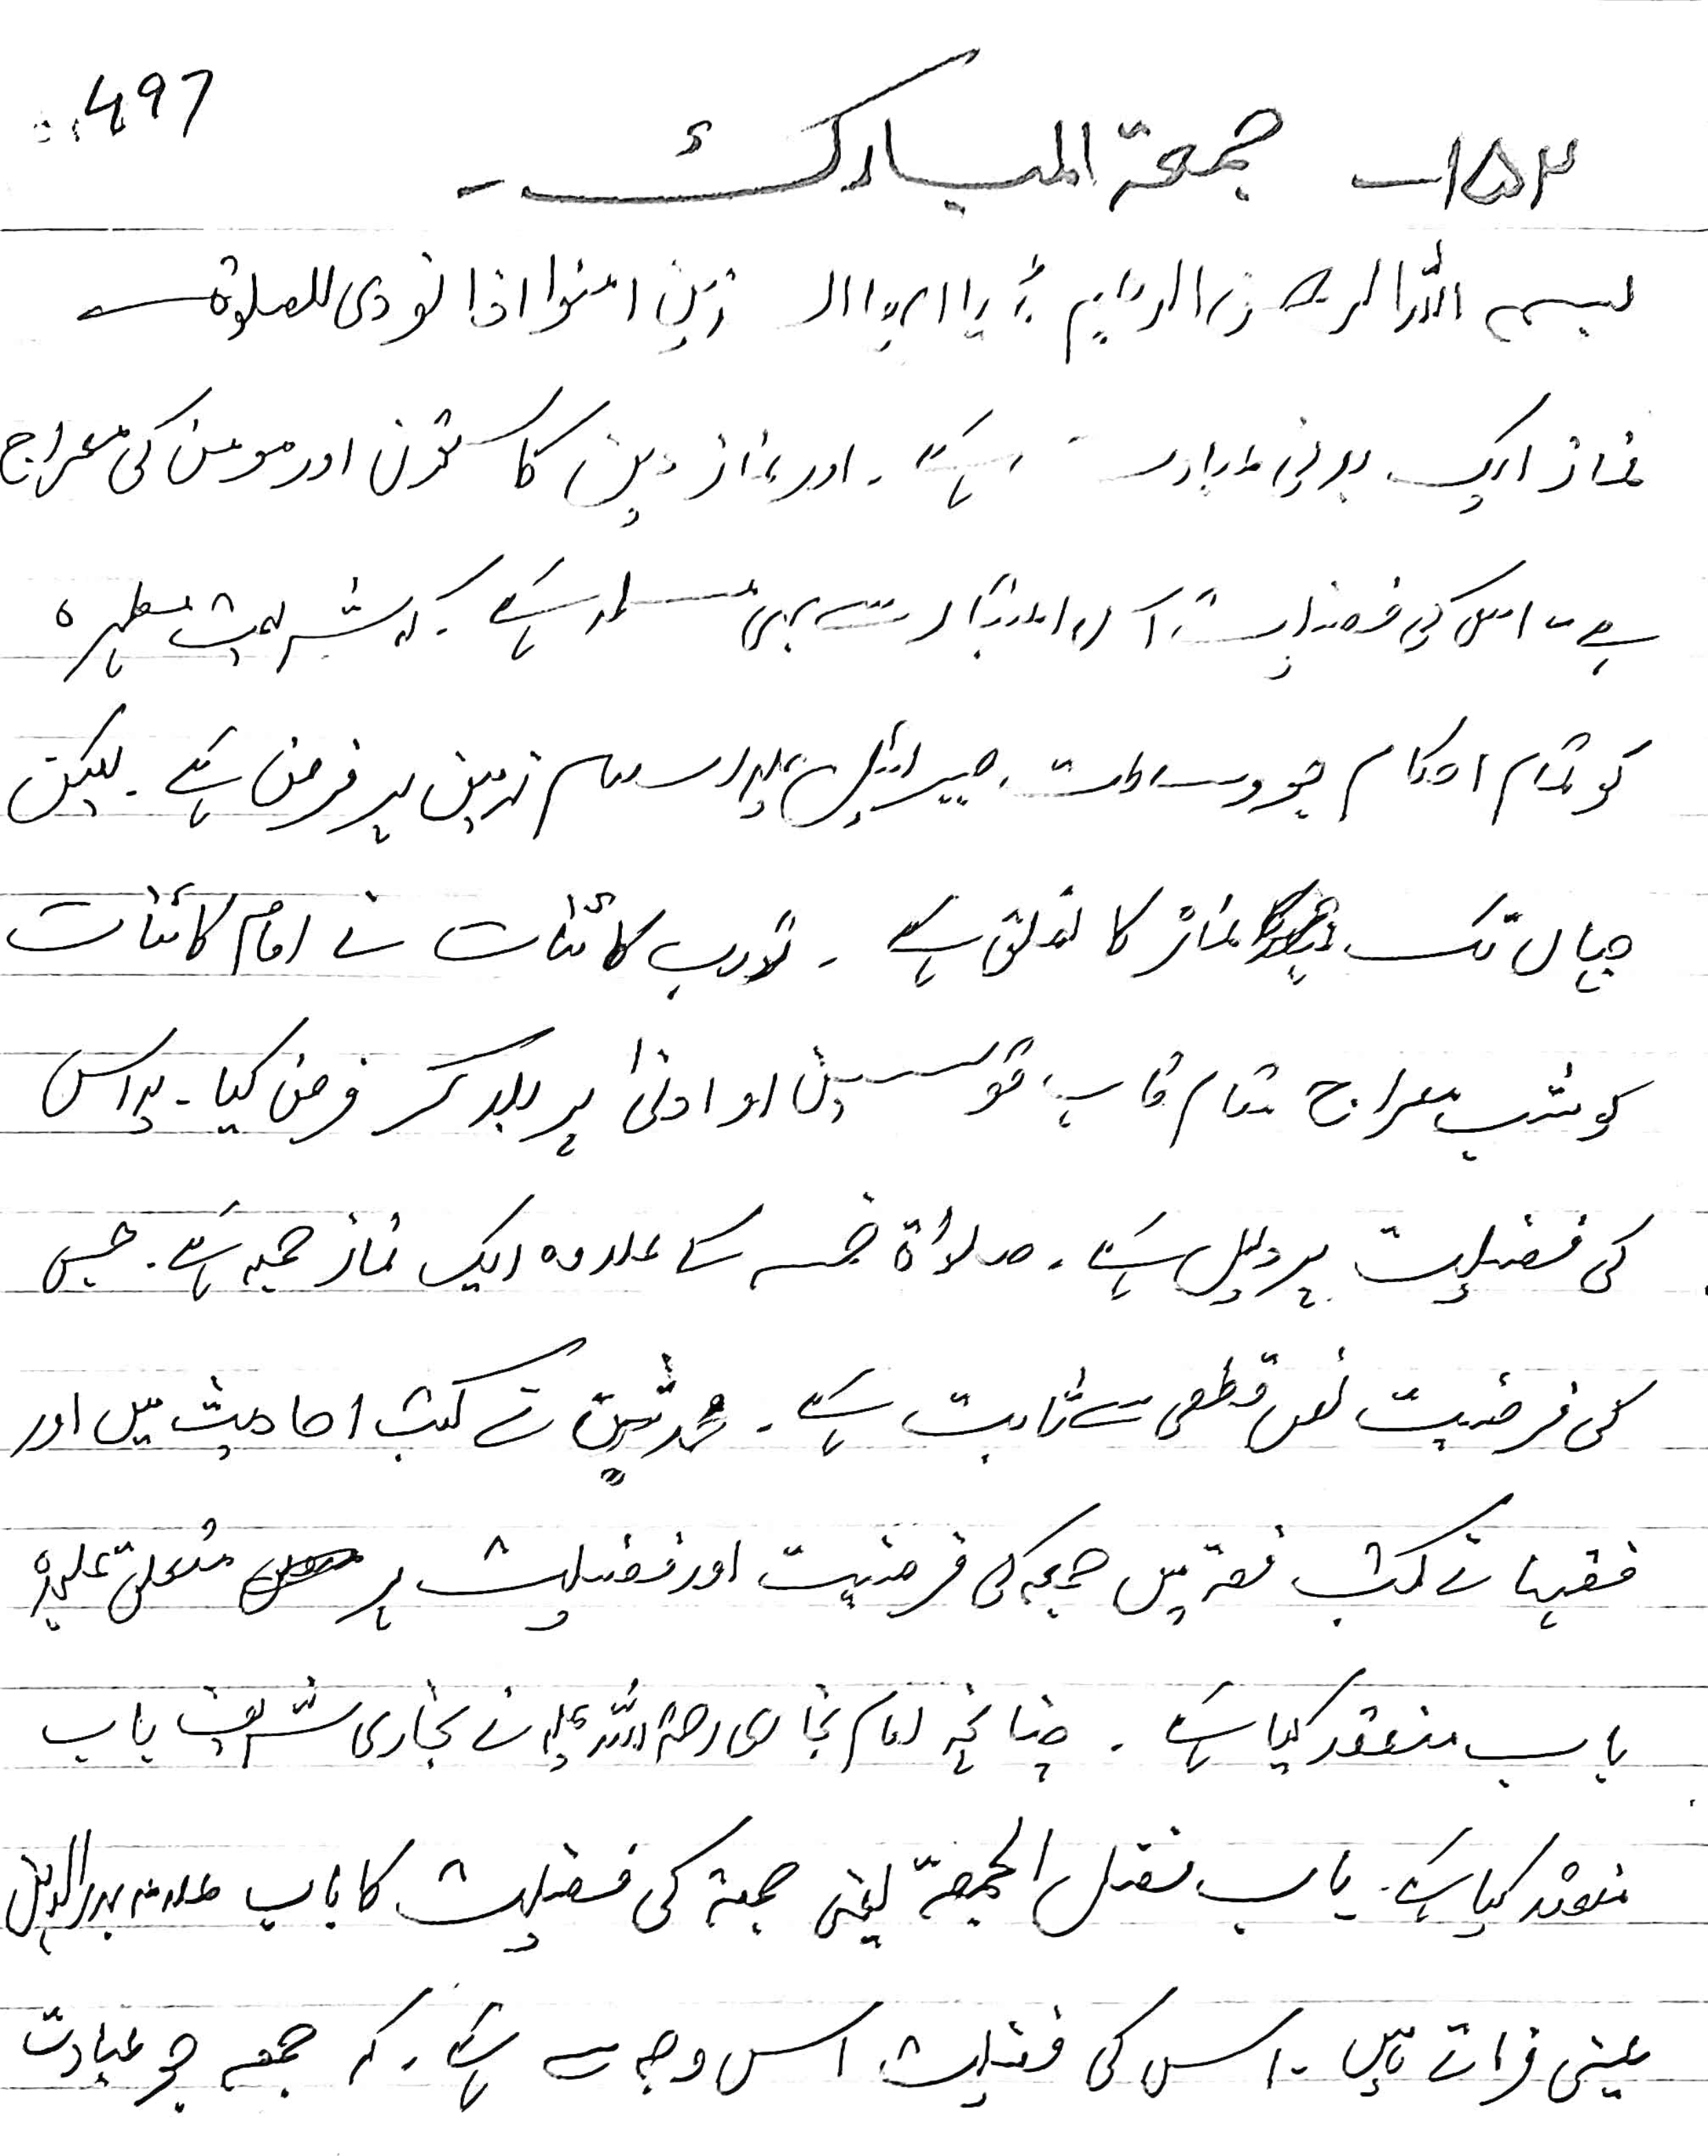 497
۱۵۲ـ جمعۃ المبارک ـ
بسم اللہ الرحمٰن الرحیم یا ایھا الذین امنوا اذا نودی للصلوۃ
نماز ایک بدنی عبادت ہے ۔ اور نماز دین کا ستون اور مومن کی معراج
ہے ۔ اس کی فضیلت اس اعتبار سے بھی مسلمہ ہے ۔ کہ شریعت مطہرہ
کو تمام احکام جو وساطت جبرائیل علیہ اسلام زمین پر فرض ہے ۔ لیکن
جہاں تک نماز کا تعلق ہے ۔ تو رب کائنات نے امام کائنات
کو شب معراج مقام قاب قوسین او ادنیٰ پر بلا کر فرض کیا ۔ یہ اس
کی فضیلت پر دلیل ہے ۔ صلوٰۃ خمسہ کے علاوہ ایک نماز جمعہ ہے ۔ جس
کی فرضیت نص قطعی سے ثابت ہے ۔ محدثین نے کتب احادیث میں اور
فقہا نے کتب فقہ میں جمعہ کی فرضیت اور فضیلت پر متعلق علیحدہ
باب منعقد کیا ہے ۔ چنانچہ امام بخاری رحمۃ اللہ علیہ نے بخاری شریف باب
منعقد کیا ہے ۔ باب فضل الجمعۃ یعنی جمعۃ کی فضیلت کا باب علامہ بدرالدین
عینی فرماتے ہیں ۔ اس کی فضیلت اس وجہ سے ہے ۔ کہ جمعہ جو عبادت